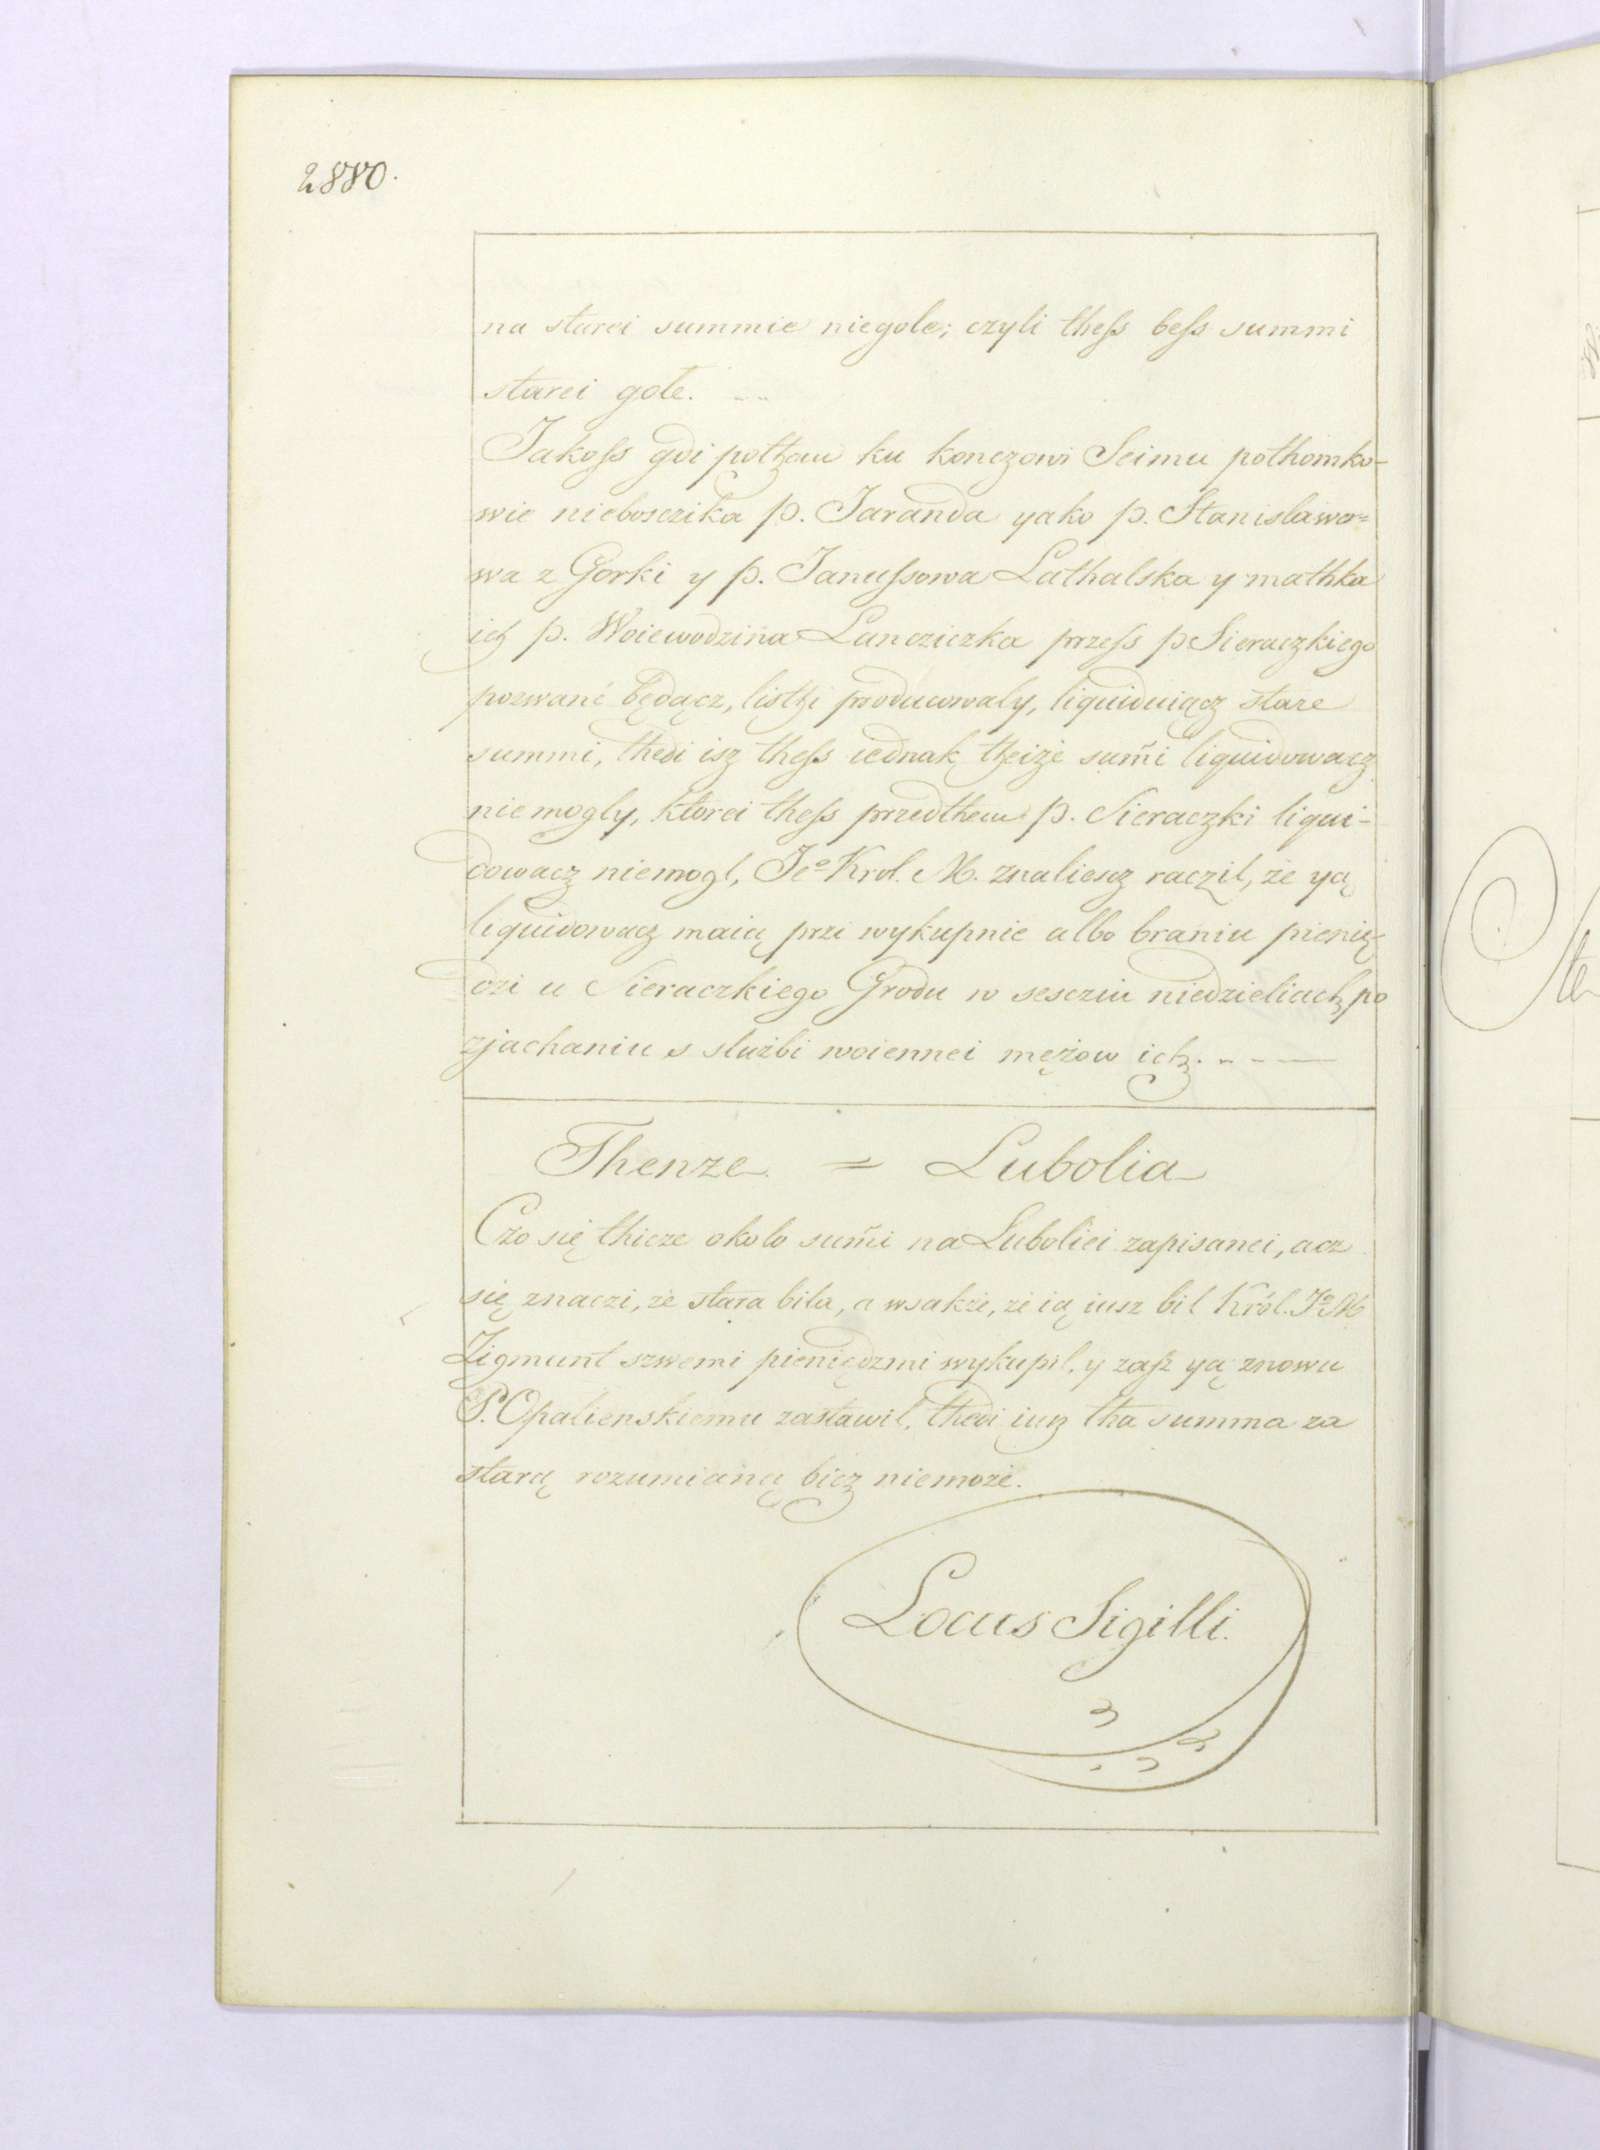 2880.
na starei summie niegole; czyli thess bess summi
starei gołe.
Jakoss gdi potzau ku konczowi Seimu pothomko-
wie niebosczika p. Jaranda yako p. Stanislawo=
wa z Gorki y p. Janussowa Lathalska y mathka
ich p. Woiewodzina Lancziczka przess p Sieraczkiego
pozwane będącz, listzi producowaly, liquiduiącz stare
summi, thedi isz thess iednak tzeiże sum̃i liquidowacz
nie mogly, ktorei thess przedthem p. Sieraczki liqui-
dowacz niemogl, Jeº Krol. M. znaliescz raczil, że yą
liquidowacz maią przi wykupnie albo braniu pienię
dzi u Sieraczkiego Grodu w sesciu niedzieliach po
zjachaniu s służbi woiennei mężow ich.
Thenze = Lubolia
Czo się thicze okolo sum̃i na Luboliei zapisanei, acz
się znaczi, że stara bila, a wsakże, że ią iusz bil Król. Jº M
Zigmunt szwemi pieniędzmi wykupil, y zasz yą znowu
P. Opalienskiemu zastawil, thedi iusz tha summa za
starą rozumianą bicz niemoże.
Locus Sigilli.